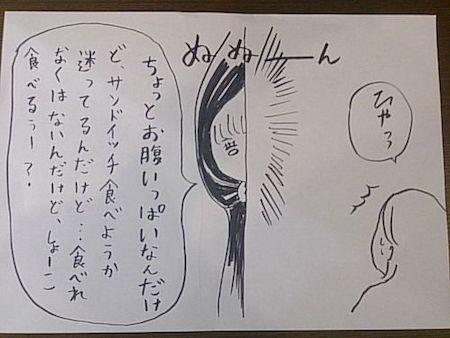 ぬぬーん
ひやっっ
ちょっとお腹いっぱいなんだけ
ど、サンドイッチ食べようか
迷ってるんだけど…食べれ
なくはないんだけど、しょーこ
食べるぅー?